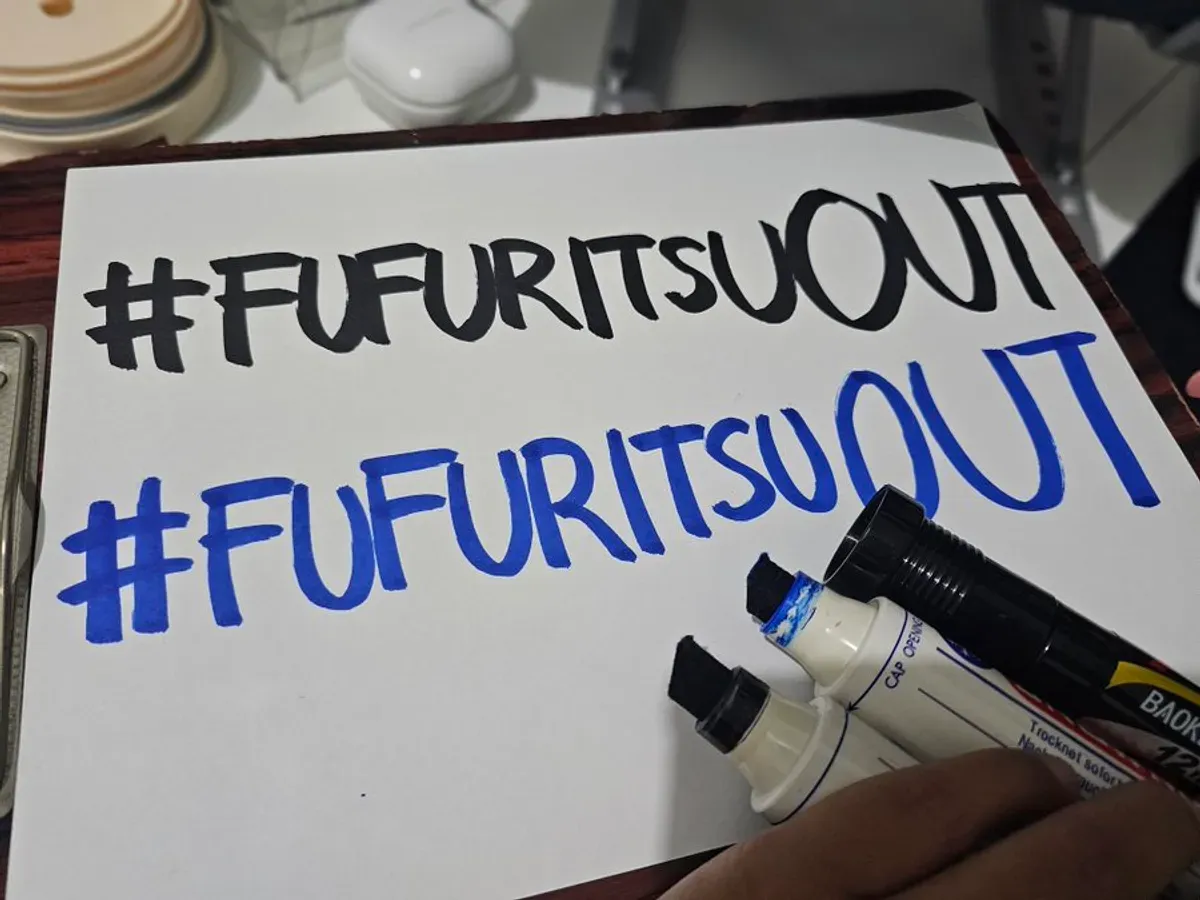 #FUFURITSUOUT
#FUFURITSUOUT
CAP OPENING
Trocknet sofort
BAOK